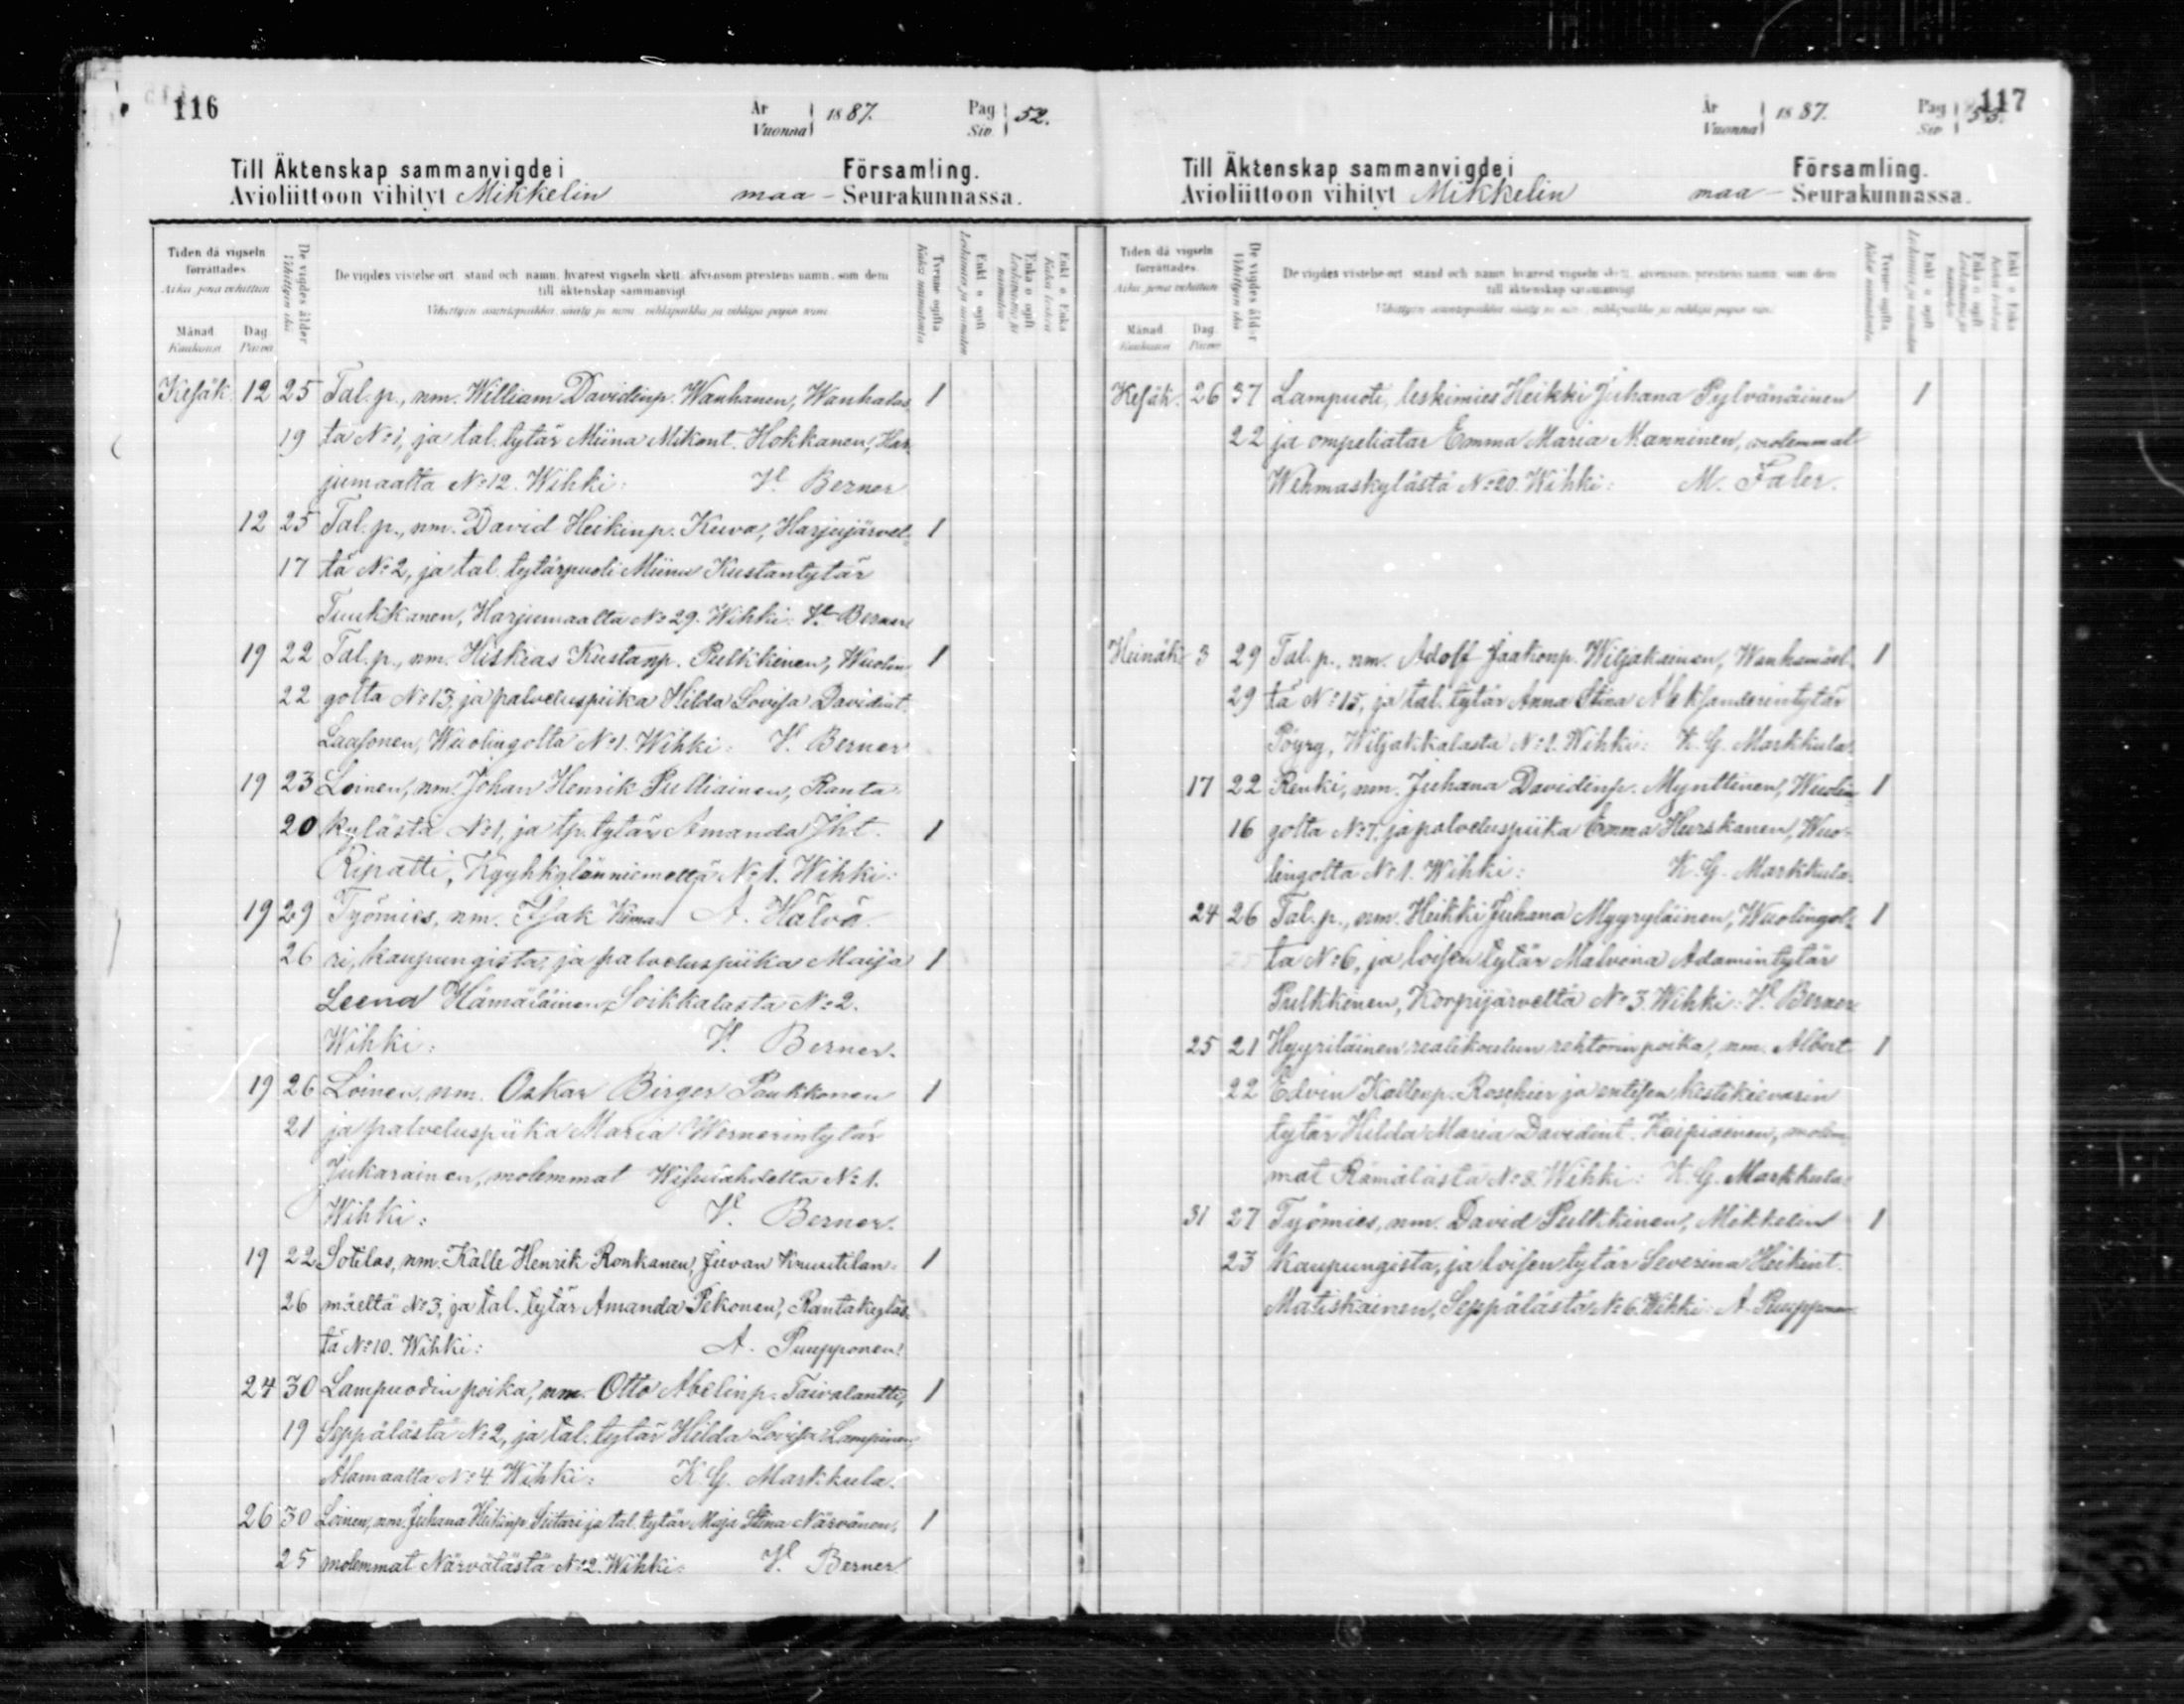 116
År 1887. Pag 52.
Vuonna Siv.
Till Äktenskap sammanvigde i Församling.
Avioliittoon vihityt Mikkelin maa - Seurakunnassa.
Tiden då vigseln förrättades.
Månad Dag
Kuukausi Päivä
De vigdes ålder
Vihittyin ikä
De vigdes vistelseort, stånd och namn, hvarest vigseln skett, äfvensom prestens namn, som dem
till äktenskap sammanvigt
Tvenne ogifta
Enkl. o. ogift
Enka o. ogift
Enkl. o. Enka
Kesäk. 12 25 Tal. p., nm. William Davidinp. Wanhanen, Wanhalas 1
19 ta No 1, ja tal. tytär Miina Mikont. Hokkanen, Har
jumaalta No 12. Wihki: V. Berner
12 25 Tal. p., nm. David Heikinp. Kuva, Harjujärvel 1
17 tä No 2, ja tal. tytärpuoli Miina Kustantytär
Tuukkanen, Harjumaalta No 29. Wihki: V. Berner
19 22 Tal. p., nm. Hiskias Kustanp. Pulkkinen, Wuolin 1
22 golta No 13, ja palveluspiika Hilda Lovisa Davidint.
Laasonen, Wuolingolta No 1. Wihki: V. Berner
19 23 Loinen, nm. Johan Henrik Pulliainen, Ranta
20 kylästä No 1, ja tp. tytär Amanda Jht. 1
Ripatti, Kyyhkylänniemeltä No 1. Wihki:
19 29 Työmies, nm. Isak Kima A. Hälvä
26 ri, kaupungista, ja palveluspiika Maija 1
Leena Hämäläinen, Soikkalasta No 2.
Wihki: V. Berner.
19 26 Loinen, nm. Oskar Birger Poukkonen 1
21 ja palveluspiika Maria Wernerintytär
Jukarainen, molemmat Wisulahdelta No 1.
Wihki: V. Berner.
19 22 Sotilas, nm. Kalle Henrik Ronkanen, Juvan 1
26 mäeltä No 3, ja tal. tytär Amanda Pekonen, Rantakyläs
tä No 10. Wihki: A. Puupponen.
24 30 Lampuodin poika, nm. Otto Abelinp. Taivalantti, 1
19 Seppälästä No 2, ja tal. tytär Hilda Lovisa Lampinen
Alamaalta No 4 Wihki: K. G. Markkula.
26 30 Loinen, nm. Juhana Heikinp. Siitari ja tal. tytär Maja Stina Närvänen, 1
25 molemmat Närvälästä No 2. Wihki: V. Berner
117
År 1887. Pag 53.
Vuonna Siv
Till Äktenskap sammanvigde i Församling.
Avioliittoon vihityt Mikkelin maa - Seurakunnassa.
Tiden då vigseln förrättades.
Månad Dag
Kuukausi Päivä
De vigdes ålder
Vihittyin ikä
De vigdes vistelseort, stånd och namn, hvarest vigseln skett, äfvensom prestens namn, som dem
till äktenskap sammanvigt
Tvenne ogifta
Enkl. o. ogift
Enka o. ogift
Enkl. o. Enka
Kesäk. 26 37 Lampuoti, leskimies Heikki Juhana Pylvänäinen 1
22 ja ompeliatar Emma Maria Manninen, molemmat
Wehmaskylästä No 20. Wihki: M. Faler.
Heinäk. 3 29 Tal. p., nm. Adolf Jaakonp. Wiljakainen, Wanhamäel 1
29 tä No 15, ja tal. tytär Anna Stina Aleksanderintytär
Pöyry, Wiljakkalasta No 1. Wihki: K. G. Markkula.
17 22 Renki, nm. Juhana Davidinp. Mynttinen, Wuolin 1
16 golta No 7, ja palveluspiika Emma Hurskanen, Wuo-
lingolta No 1. Wihki: K. G. Markkula.
24 26 Tal. p., nm. Heikki Juhana Myyryläinen, Wuolingol- 1
ta No 6, ja loisen tytär Malvina Adamintytär
Pulkkinen, Korpijärveltä No 3. Wihki: V. Berner
25 21 Hyyriläinen realikoulun rehtorin poika, nm. Albert 1
22 Edvin Kallenp. Roschier ja entisen kestikievarin
tytär Hilda Maria Davidint. Kaipiainen, molem
mat Rämälästä No 8. Wihki: K. G. Markkula.
31 27 Työmies, nm. David Pulkkinen, Mikkelin 1
23 kaupungista, ja loisen tytär Severina Heikint.
Matiskainen, Seppälästä No 6. Wihki: A. Puupponen